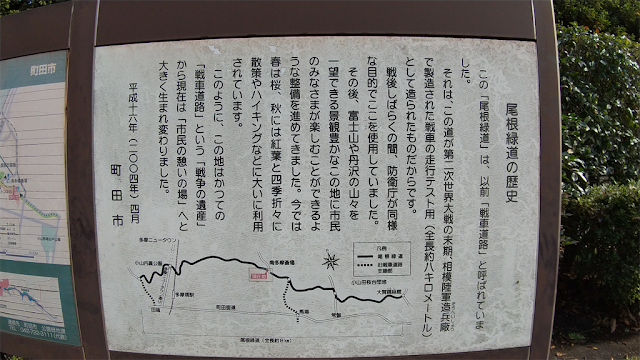 尾根緑道の歴史
この「尾根緑道」は、以前「戦車道路」と呼ばれていま
した。
それは、この道が第二次世界大戦の末期、相模陸軍造兵廠
で製造された戦車の走行テスト用（全長約八キロメートル）
として造られたものだからです。
戦後しばらくの間、防衛庁が同様
な目的でここを使用していました。
その後、富士山や丹沢の山々を
一望できる景観豊かなこの地に市民
のみなさまが楽しむことができるよ
うな整備を進めてきました。今では
春は桜、秋には紅葉と四季折々に
散策やハイキングなどに大いに利用
されています。
このように、この地はかつての
「戦車道路」という「戦争の遺産」
から現在は「市民の憩いの場」へと
大きく生まれ変わりました。
平成十六年（二〇〇四年）四月
町田市
凡例
尾根緑道
旧戦車道路
多摩ニュータウン
小山内裏公園
南多摩斎場
現在地
小山田桜台団地
多摩境駅
町田街道
尾根緑道（全長約8km）
町田市